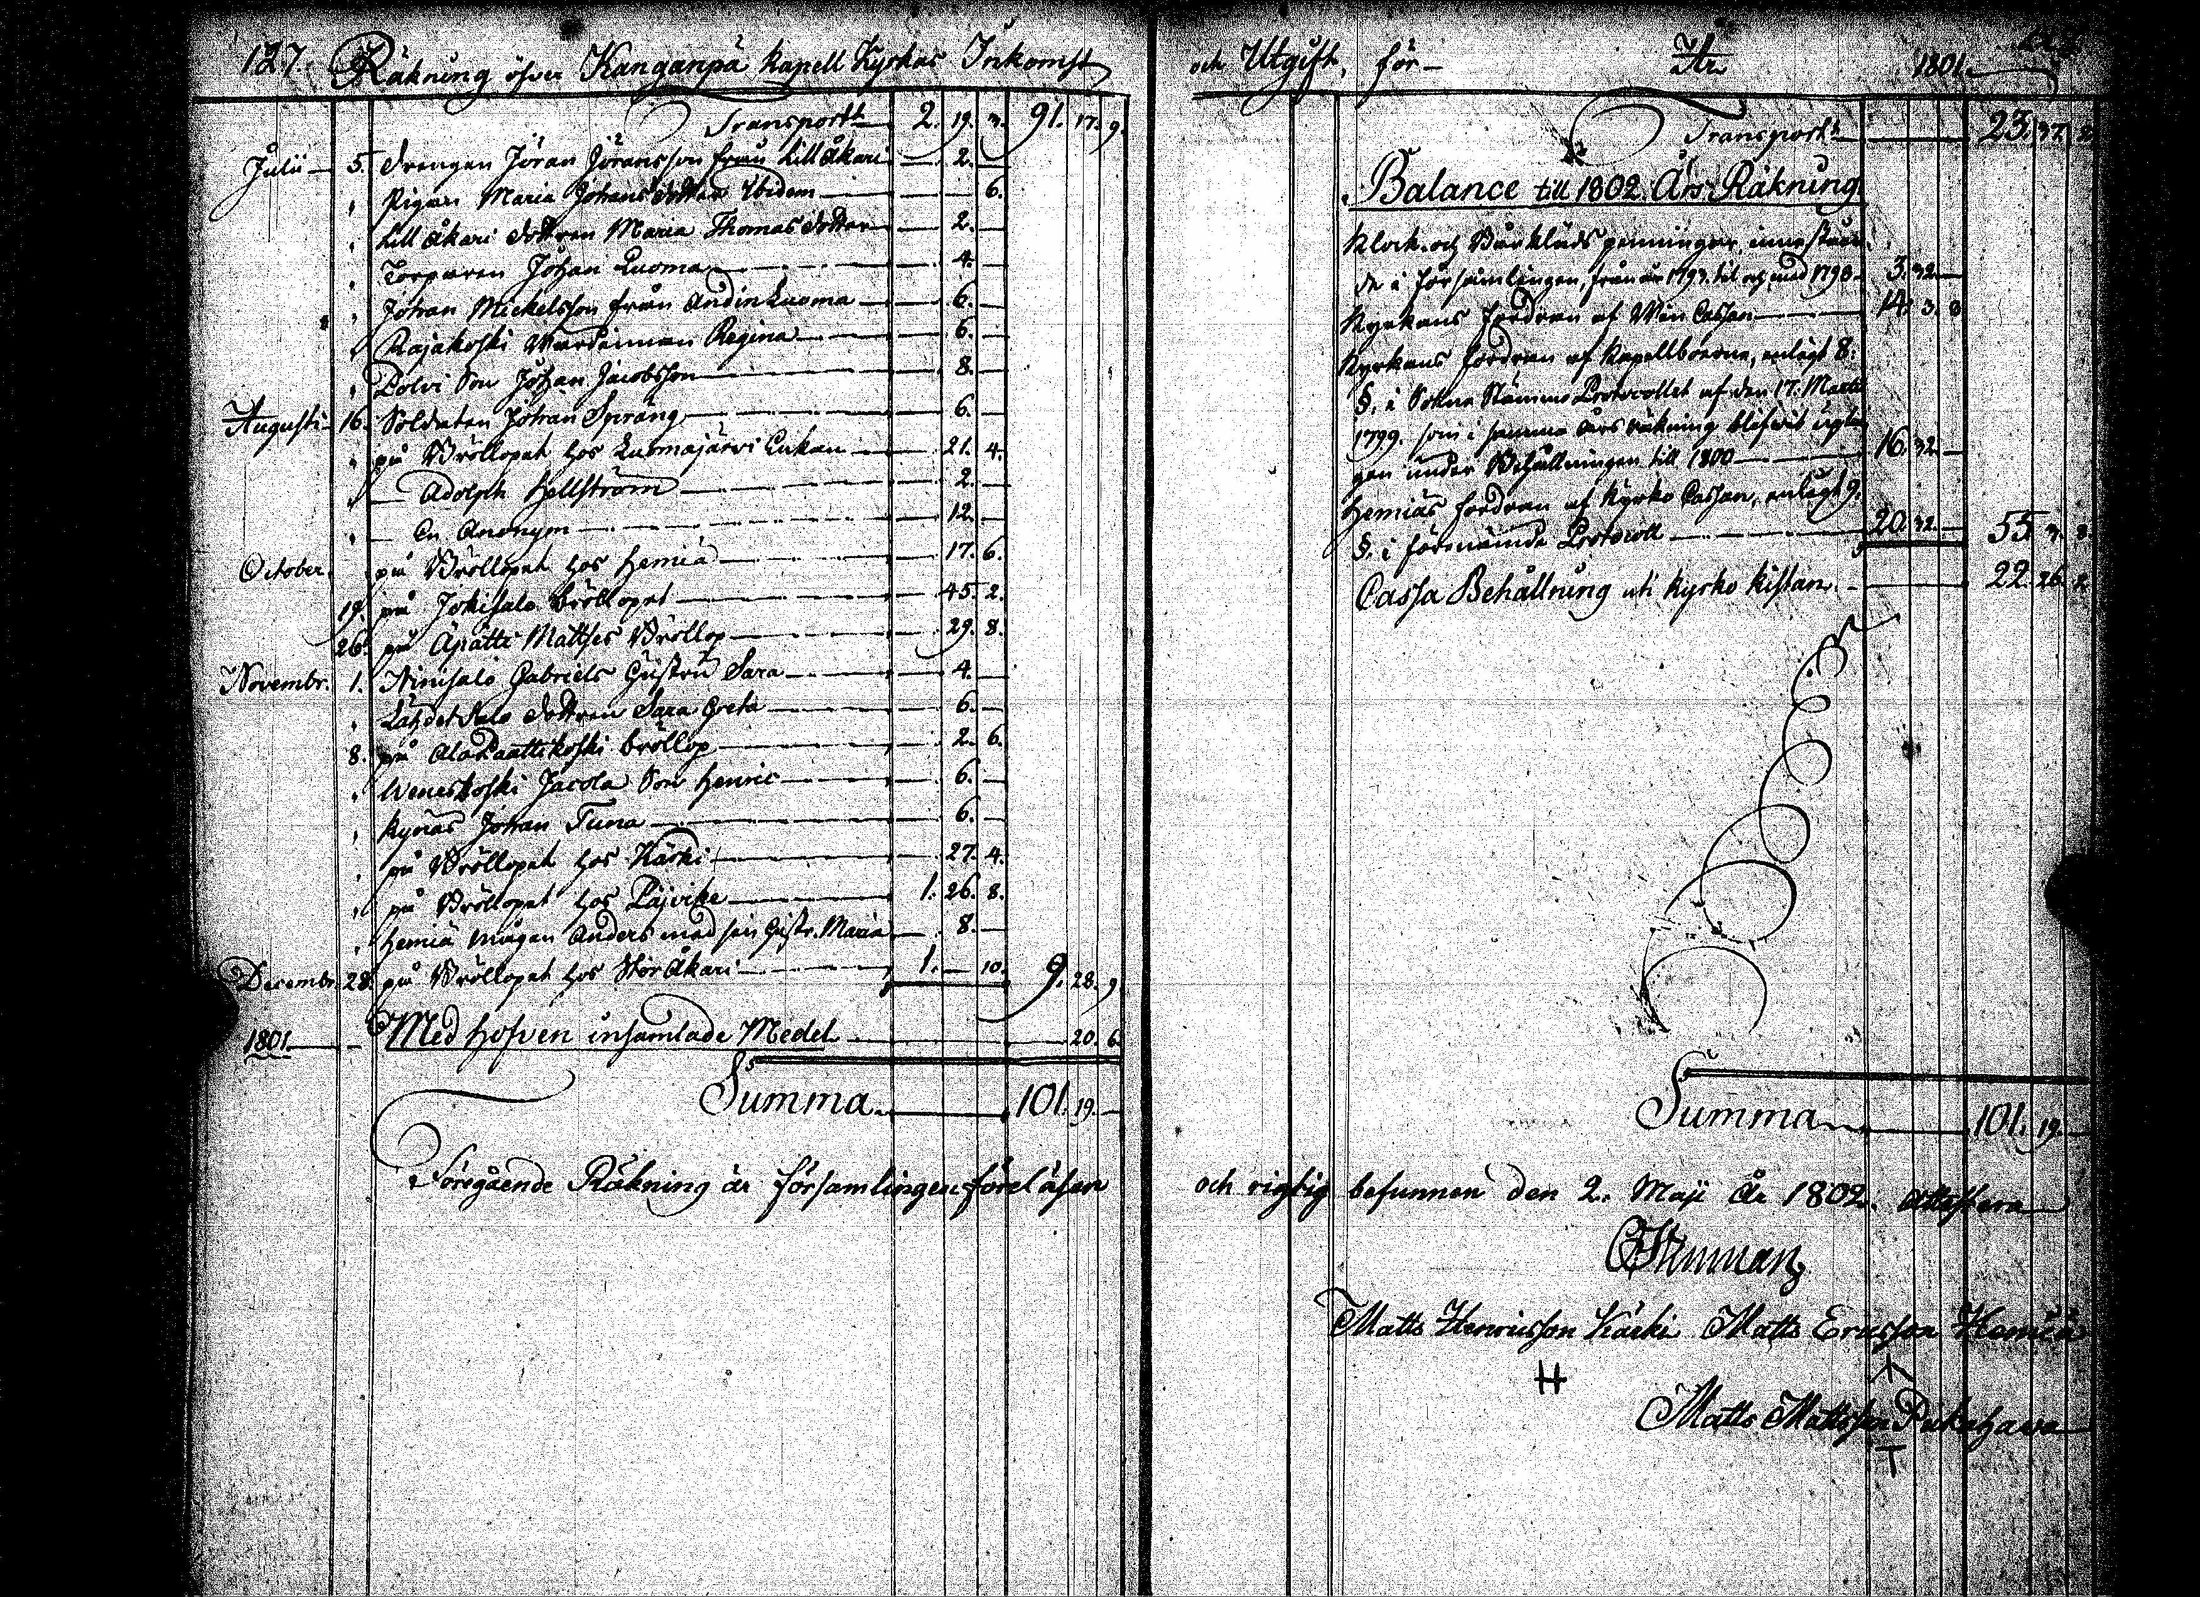 127. Räkning öfver Kanganpä Kapell Kyrkas Inkomst
Transport 2. 19. 3. 91. 17. 9.
Julii 5. Drengen Jöran Jöransson från Lill Åkari 2.
" Pigan Maria Johans dotter Ibidem 6.
" Lill Åkari dottren Maria Thomas dotter 2.
" Torparen Johan Luoma 4.
" Johan Mickelsson från Andin Luoma 6.
" Rajakoski Regina 6.
" Polvi Son Johan Jacobsson 8.
Augusti 16. Soldaten Johan Spräng 6.
" på Bröllopet hos Luomajärvi Lukan 21. 4.
" Adolph Hellström 2.
" En Anonym 12.
October på Bröllopet hos Hemiä 17. 6.
19. på Jokisalo bröllopet 45. 2.
26. på Äpätti Mattses Bröllop 29. 8.
Novembr. 1. Niinisalo Gabriels Hustru Sara 4.
" Lähdet Salo dottren Sara Greta 6.
8. på Ala Paattikoski bröllop 2. 6.
" Weneskoski Jacola Son Henric 6.
" Kynäs Johan Tuna 6.
" på Bröllopet hos Kärki 27. 4.
" på Bröllopet hos Päjvike 1. 26. 8.
" Hemiä mågen Anders med sin Hustr. Maria 8.
Decembr. 28. på Bröllopet hos Stor Åkari 1. 10. 9. 28. 9.
1801 Med Hofven insamlade Medel 20. 6.
Summa 101. 19.
Föregående Räkning är församlingen föreläsen
och Utgift, för År 1801.
Transport 23. 37.
Balance till 1802. Års Räkning
Klock- och Bårkläds penningar innestående
i församlingen, från år 1793. til och med 1798. 3. 32.
Kyrkans fordran af Win Cassan 14. 3. 8
Kyrkans fordran af Kapellboerne, enligt 8.
§. i Sokne Stämmo Protocollet af den 17. Martii
1799. som i samma års räkning blifvit
gen under Behållningen till 1800 16. 32.
Hemiäs fordran af Kyrko Cassan, enligt 9.
§. i förenämnde Protocoll 20. 32. 55. 3. 8.
Cassa Behållning uti Kyrko Kistan 22. 26. 2
Summa 101. 19.
och rigtig befunnen den 2. Maji År 1802. attestera
Matts Henricsson Kärki Matts Ericsson Hemiä
H
Matts Mattsson Pukahara
T